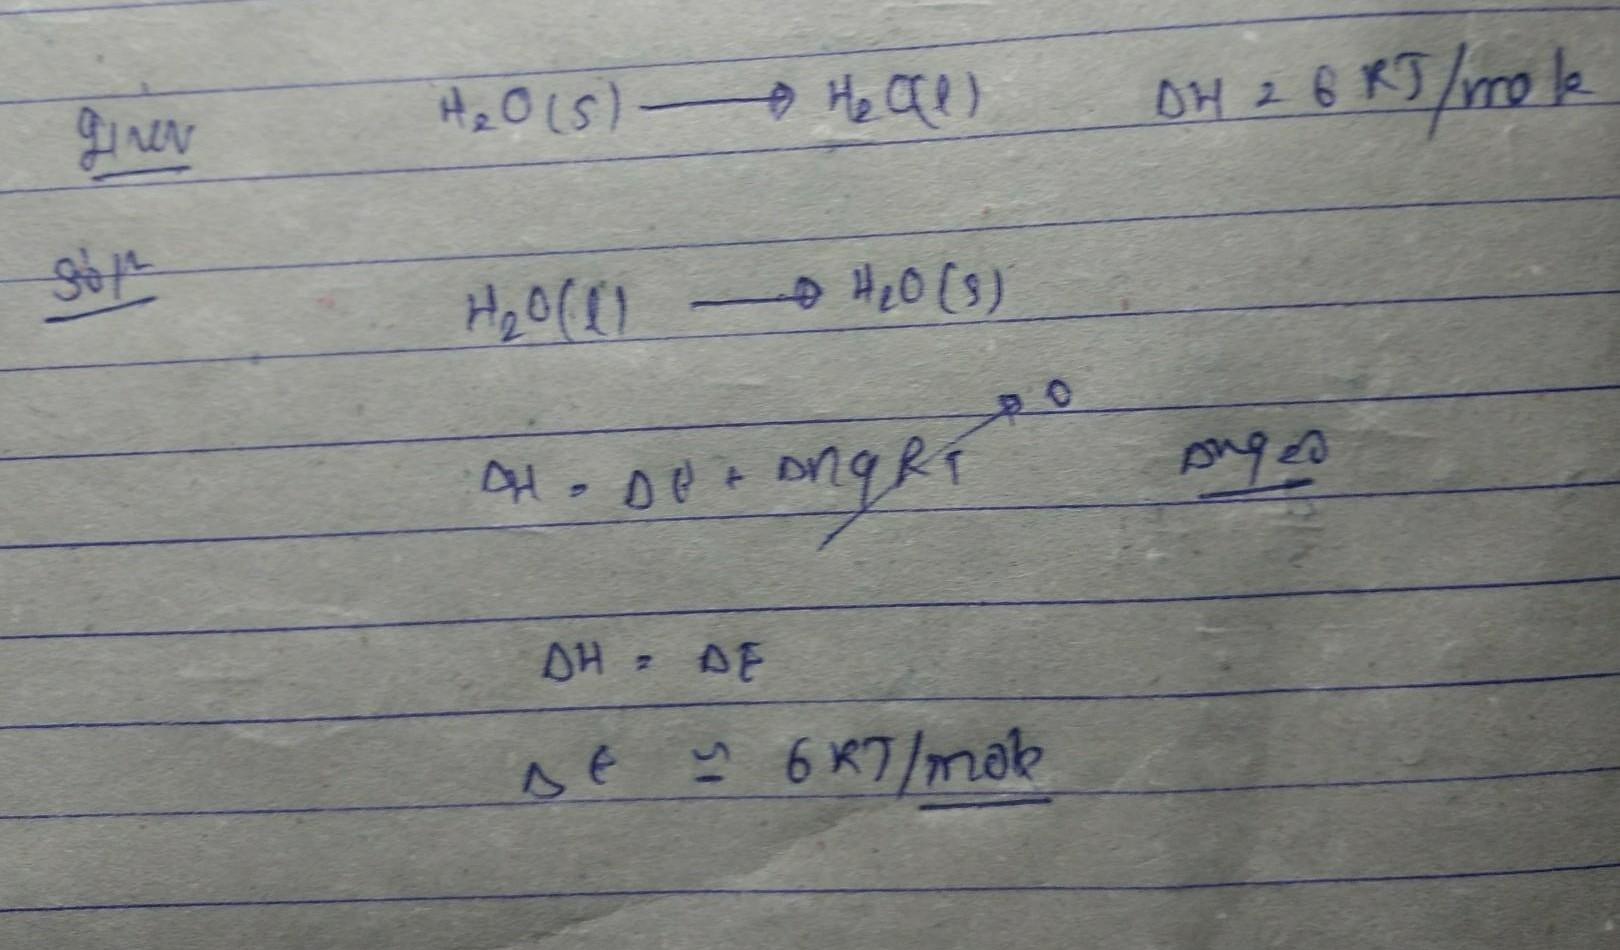 given H₂O(s) → H₂O(l) ΔH = 6 KJ/mole
Solⁿ H₂O(l) → H₂O(s)
ΔH = ΔE + ΔngRT → 0 Δng = 0
ΔH = ΔE
ΔE ≃ 6 KJ/mole